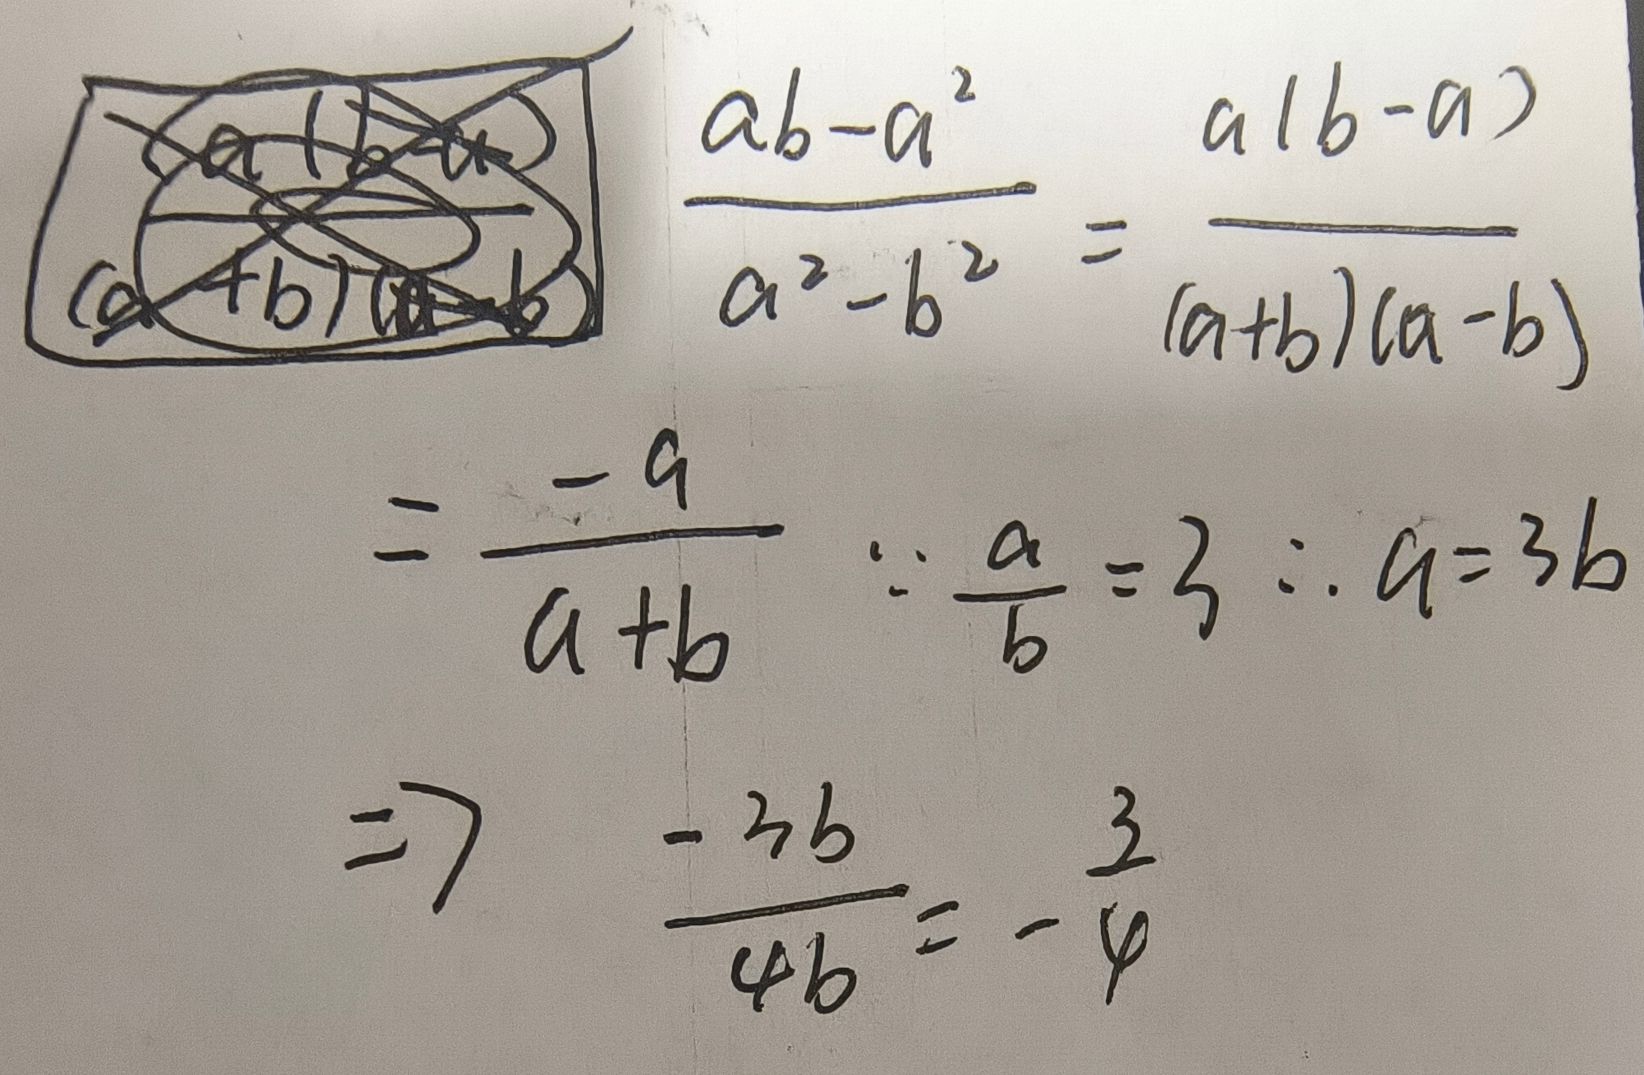 a(b-a)
(a+b)(a-b)
ab-a²/a²-b² = a(b-a)/(a+b)(a-b)
= -a/a+b ∵ a/b = 3 ∴ a=3b
=> -3b/4b = -3/4